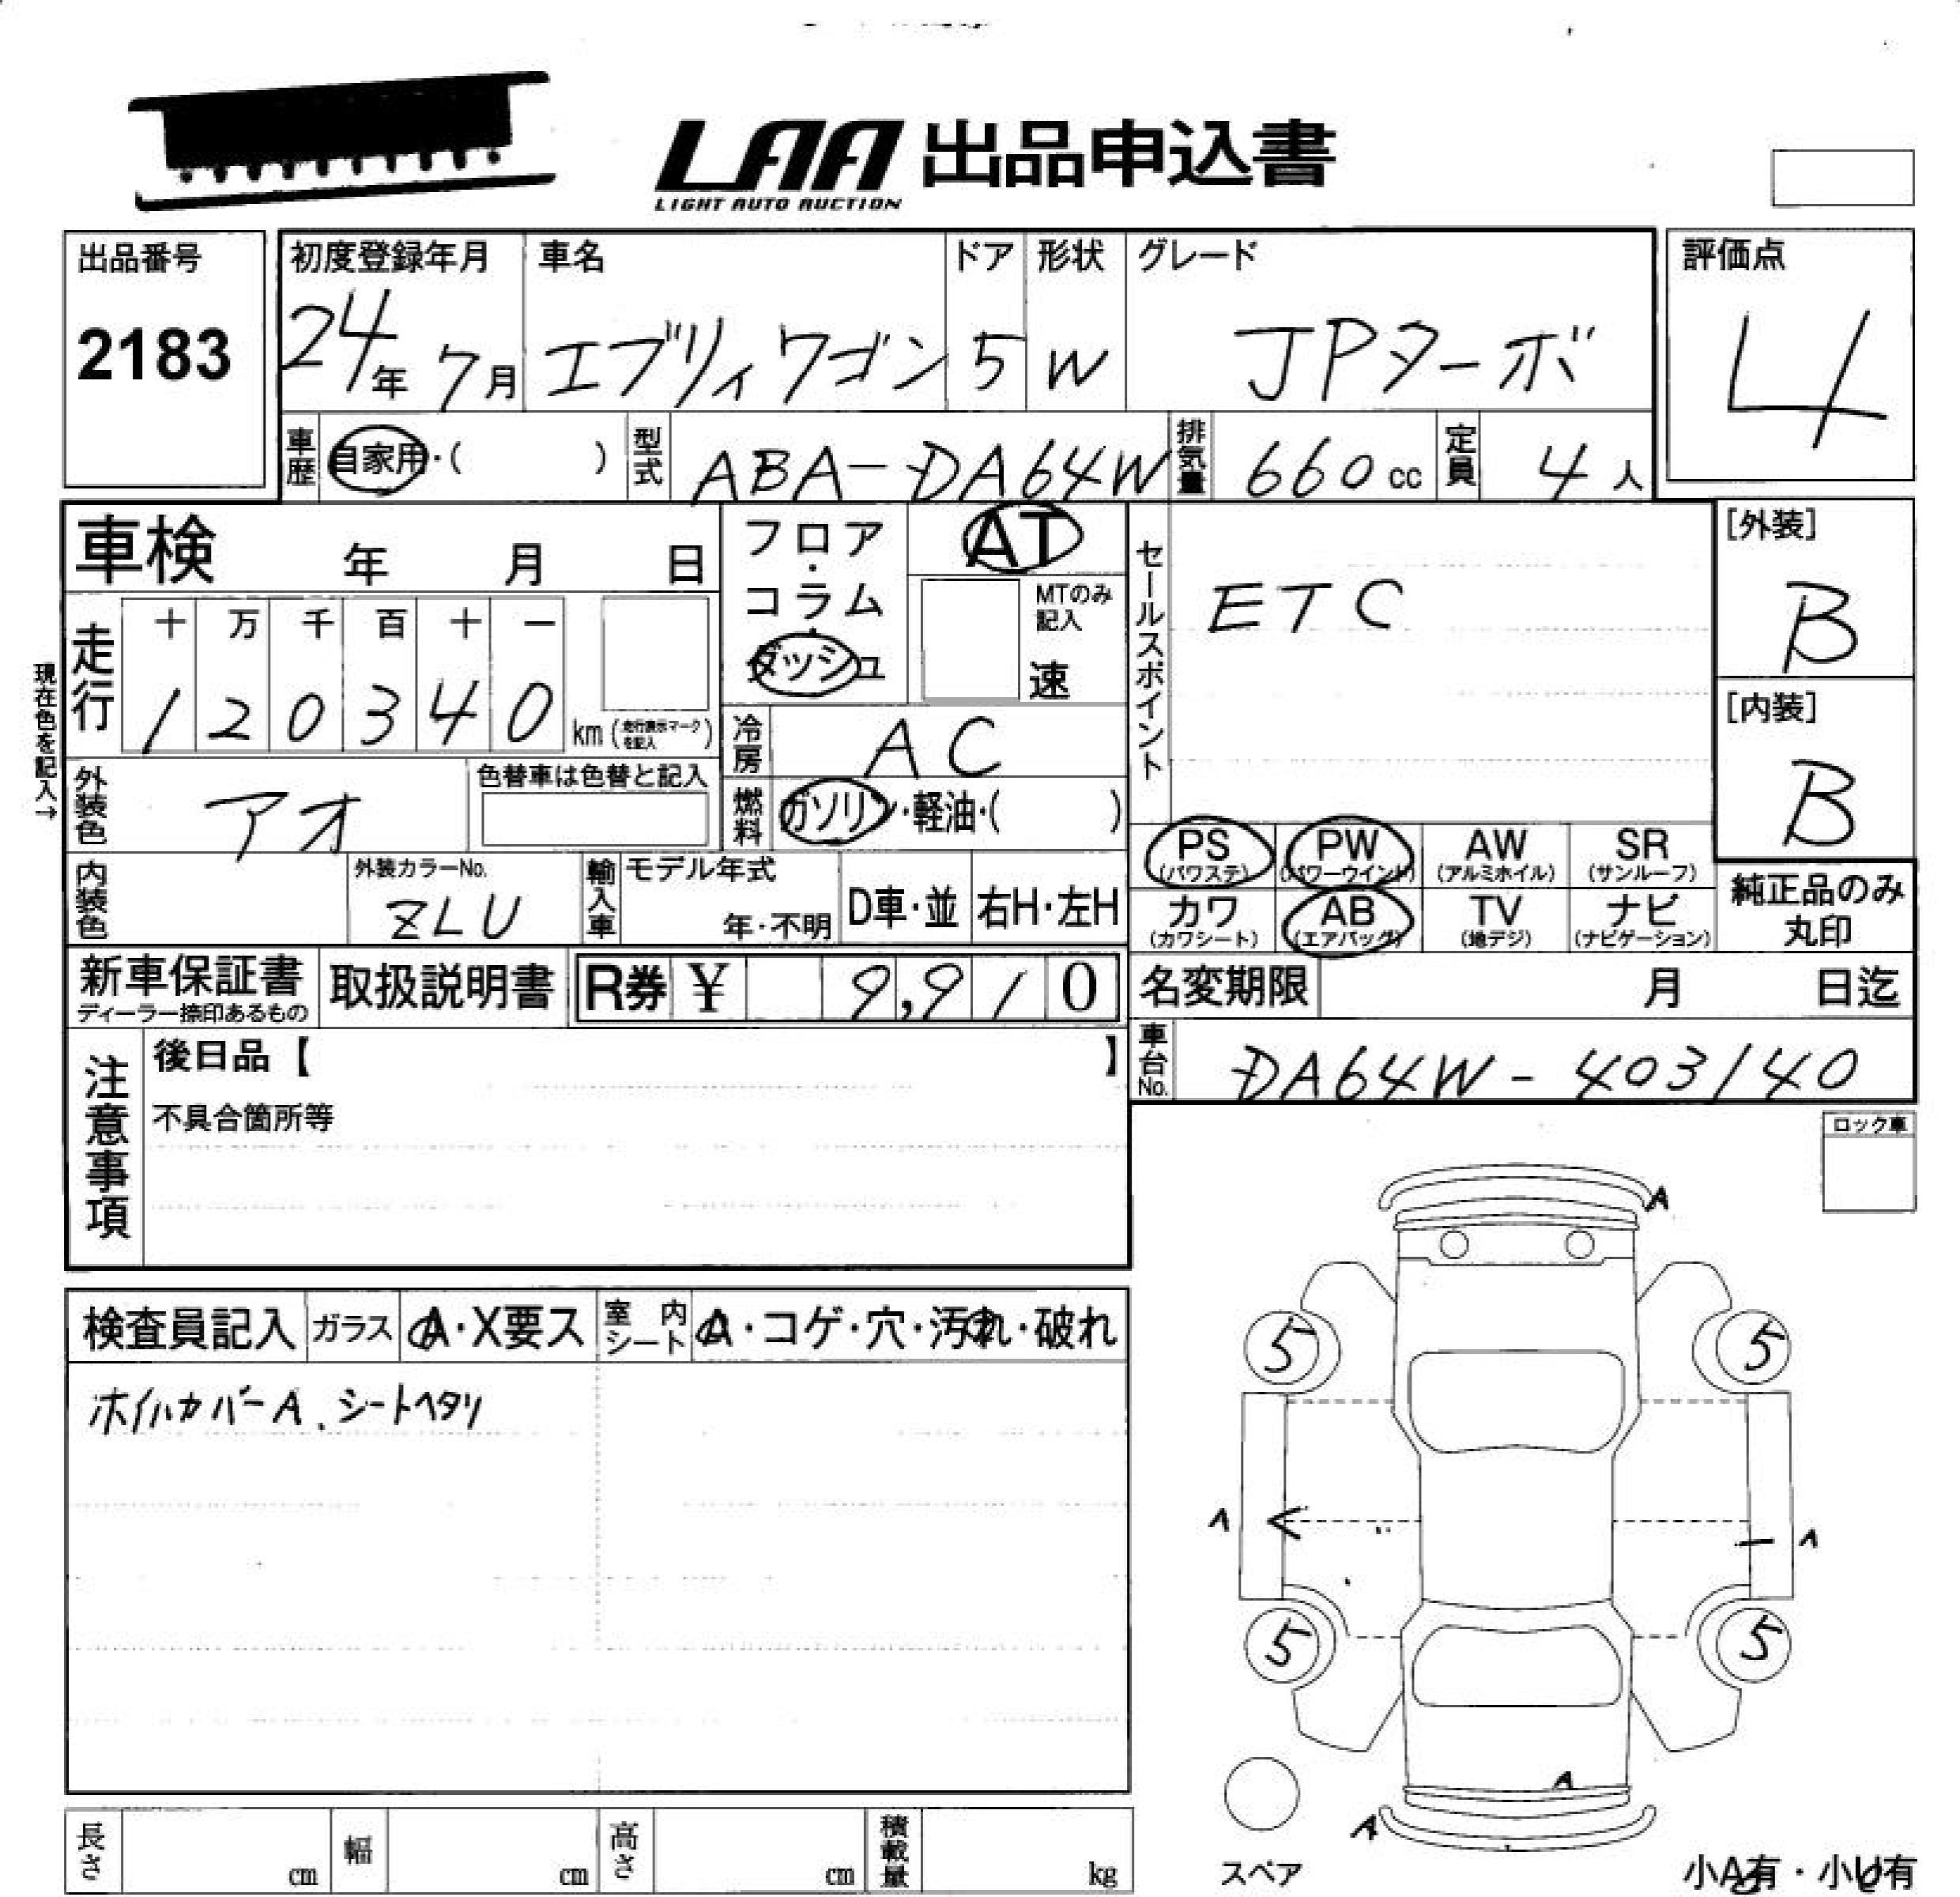 LAA 出品申込書
LIGHT AUTO AUCTION
出品番号
2183
初度登録年月
24年 7月
車名
エブリィワゴン
ドア
5
形状
W
グレード
JPターボ
評価点
4
車歴 自家用・( )
型式 ABA-DA64W
排気量 660cc
定員 4人
車検 年 月 日
フロア・コラム・ダッシュ
AT
MTのみ記入
速
セールスポイント
ETC
[外装]
B
[内装]
B
現在色を記入→
走行
十 万 千 百 十 一
1 2 0 3 4 0 km (走行表示マークを記入)
冷房 AC
外装色 アオ
色替車は色替と記入
燃料 ガソリン・軽油・( )
内装色
外装カラーNo.
ZLU
輸入車
モデル年式
年・不明
D車・並
右H・左H
PS (パワステ)
PW (パワーウインド)
AW (アルミホイル)
SR (サンルーフ)
カワ (カワシート)
AB (エアバッグ)
TV (地デジ)
ナビ (ナビゲーション)
純正品のみ丸印
新車保証書
ディーラー捺印あるもの
取扱説明書
R券 ¥ 9,910
名変期限 月 日迄
車台No. DA64W-403140
注意事項
後日品【 】
不具合箇所等
ロック車
検査員記入
ガラス A・X要ス
室内シート A・コゲ・穴・汚れ・破れ
ホイルカバーA、シートヘタリ
A
5 5
A A
5 5
A
A
スペア
長さ cm
幅 cm
高さ cm
積載量 kg
小A有・小U有